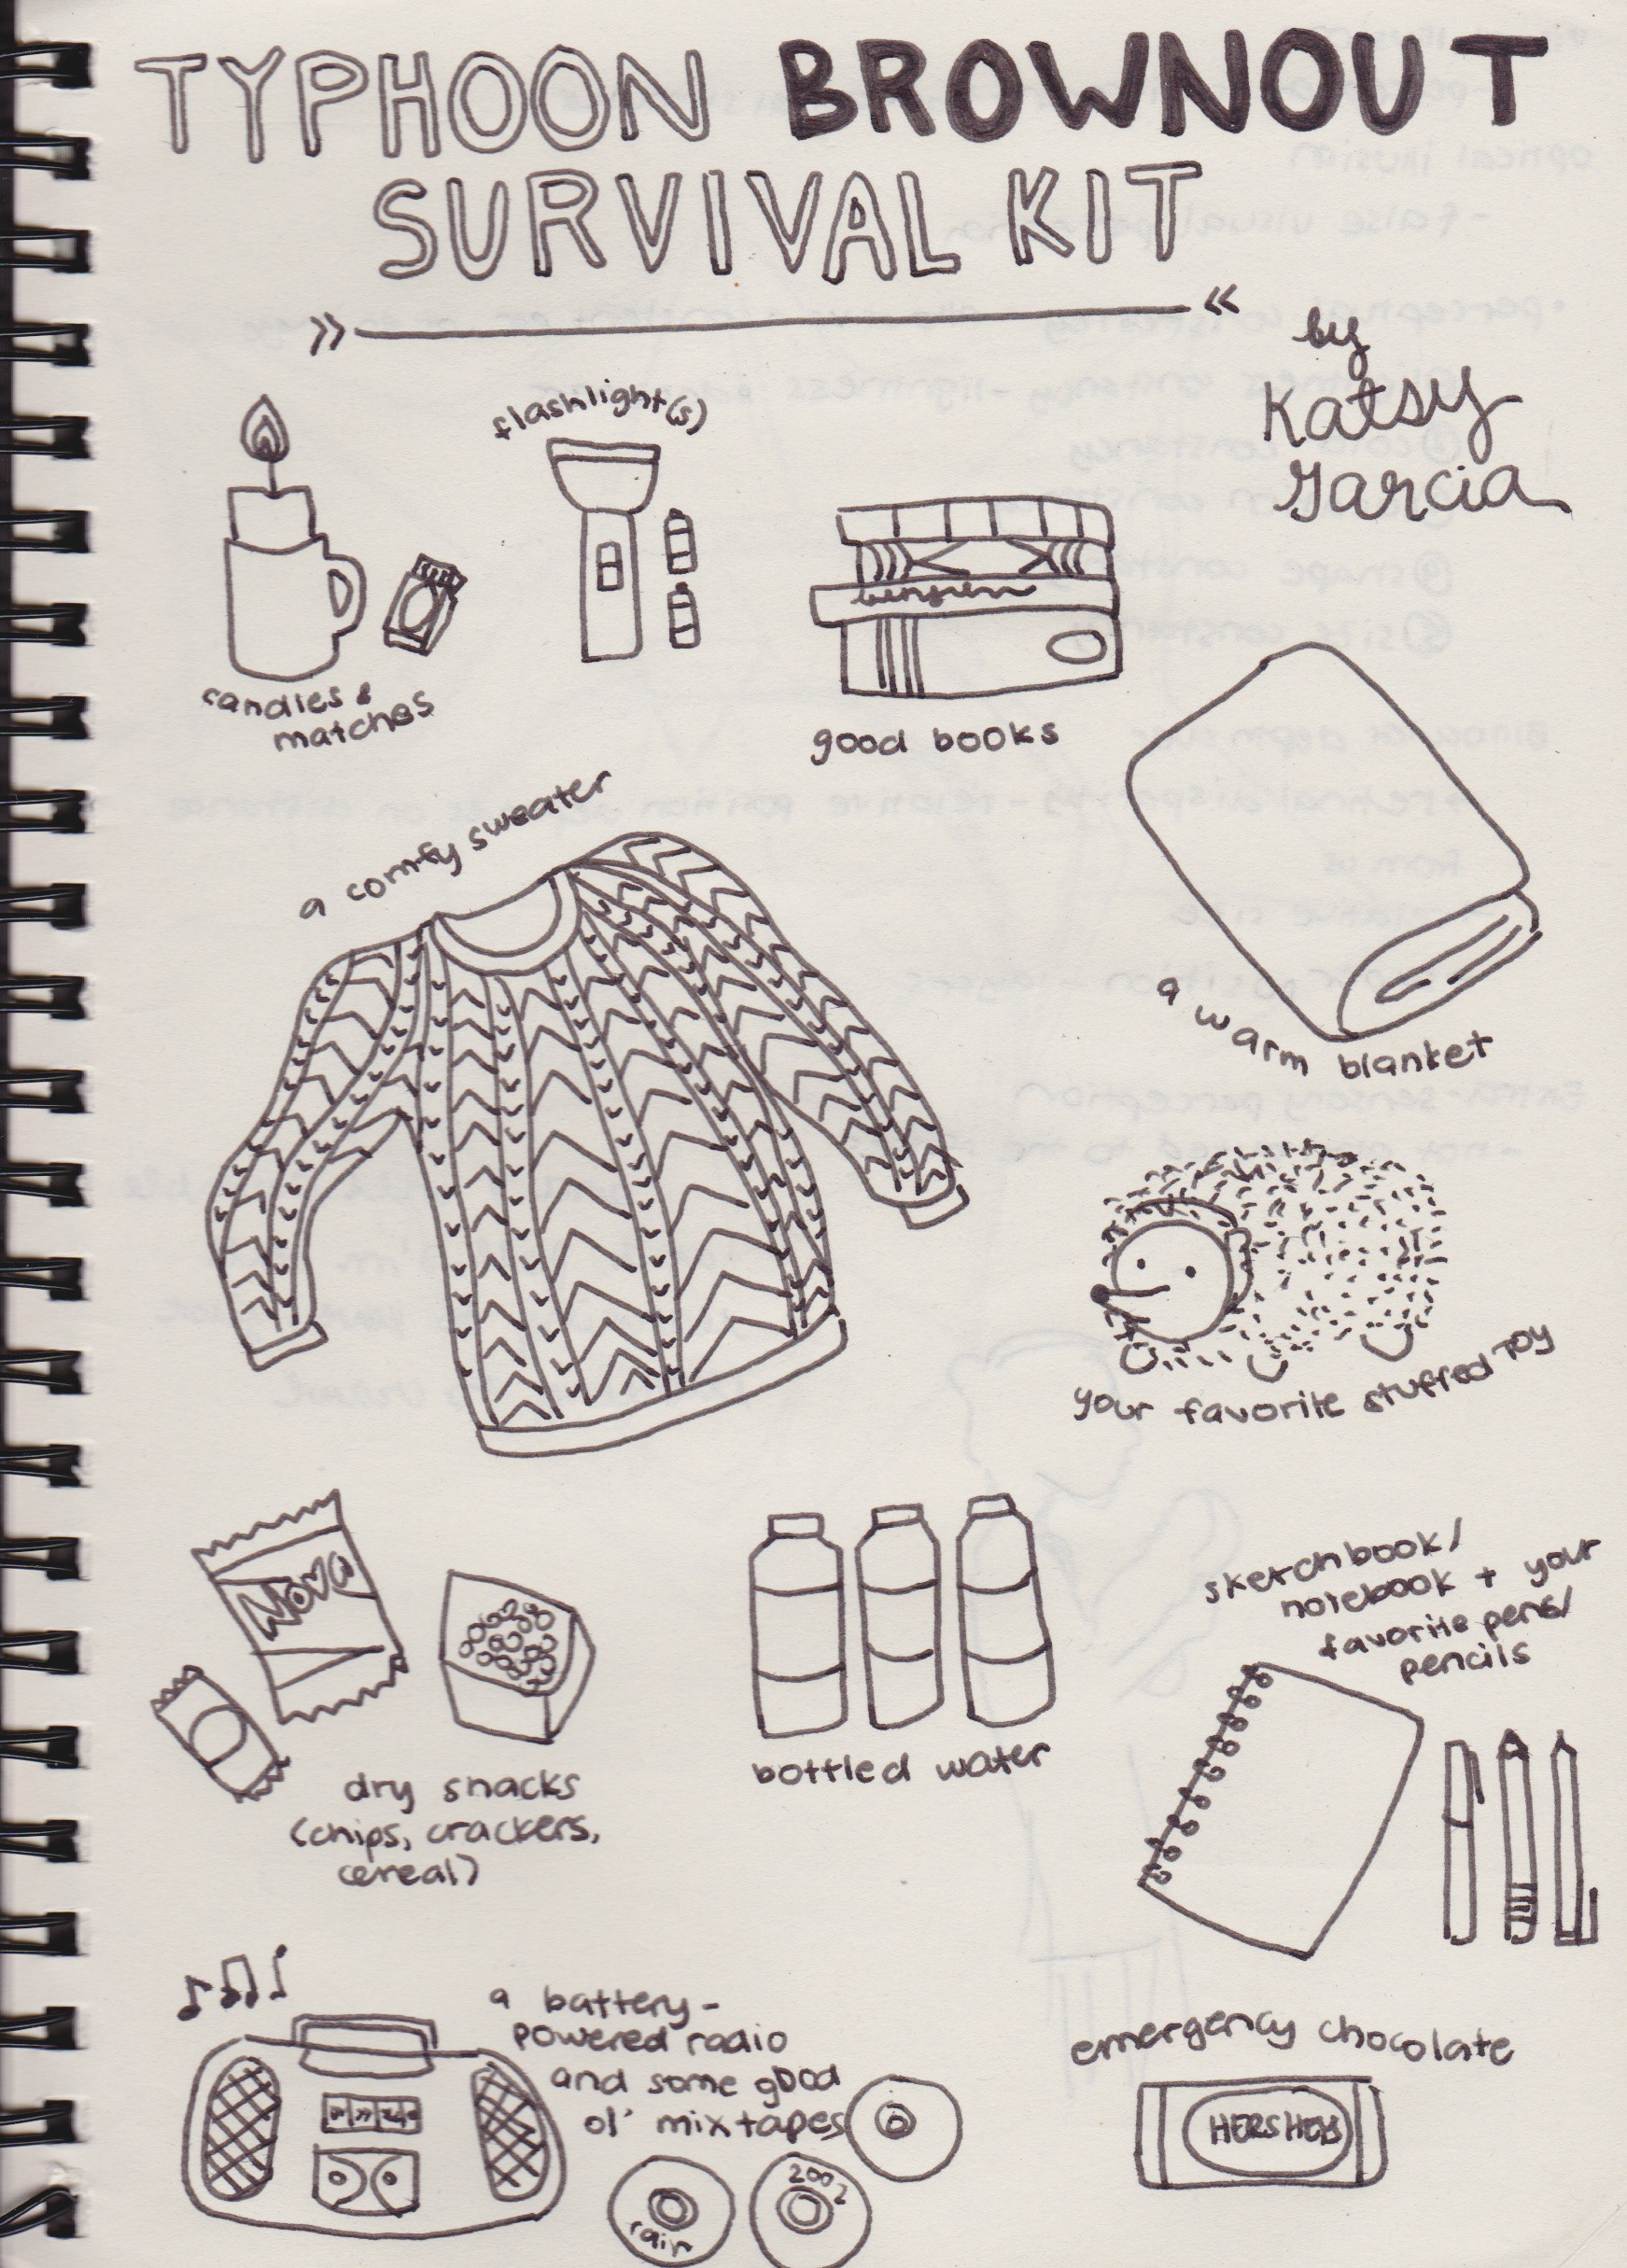 TYPHOON BROWNOUT
SURVIVAL KIT
by
Katsy
Garcia
flashlight(s)
candles &
matches
good books
a comfy sweater
a warm blanket
your favorite stuffed toy
Nova
dry snacks
(chips, crackers,
cereal)
bottled water
sketchbook/
notebook + your
favorite pens/
pencils
a battery-
powered radio
and some good
ol' mixtapes
rain
2002
emergency chocolate
HERSHEYS